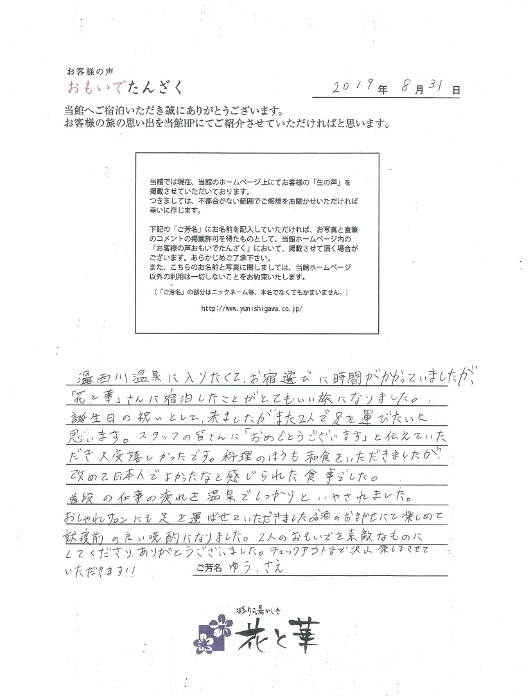 お客様の声
おもいでたんざく
2019年 8月 31日
当館へご宿泊いただき誠にありがとうございます。
お客様の旅の思い出を当館HPにてご紹介させていただければと思います。
当館では現在、当館のホームページ上にてお客様の「生の声」を
掲載させていただいております。
つきましては、不都合がない範囲でご感想をお聞かせいただければ
幸いに存じます。
下記の「ご芳名」にお名前を記入していただければ、お写真と直筆
のコメントの掲載許可を得たものとして、当館ホームページ内の
「お客様の声おもいでたんざく」において、掲載させて頂く場合が
ございます。あらかじめご了承下さい。
また、こちらのお名前と写真に関しましては、当館ホームページ
以外の利用は一切しないことをお約束いたします。
(「ご芳名」の部分はニックネーム等、本名でなくてもかまいません。)
http://www.yunishigawa.co.jp/
湯西川温泉に入りたくて、お宿選びに時間がかかっていましたが、
「花と華」さんに宿泊したことがとてもいい旅になりました。
誕生日の祝いとして、来ましたがまた2人で足を運びたいと
思います。スタッフの皆さんに「おめでとうございます」と伝えていた
だき大変嬉しかったです。料理のほうも和食をいただきましたが
改めて日本人でよかったなと感じられた食事でした。
普段の仕事の疲れを温泉でしっかりといやされました。
おしゃれサロンにも足を運ばせていただきましたお酒の
にて楽しめて
就寝前の良い晩酌になりました。2人のおもいでを素敵なものに
してくださりありがとうございました。チェックアウトまで沢山楽しませて
いただきます!!
ご芳名 ゆう、さえ
彩り湯かしき
花と華